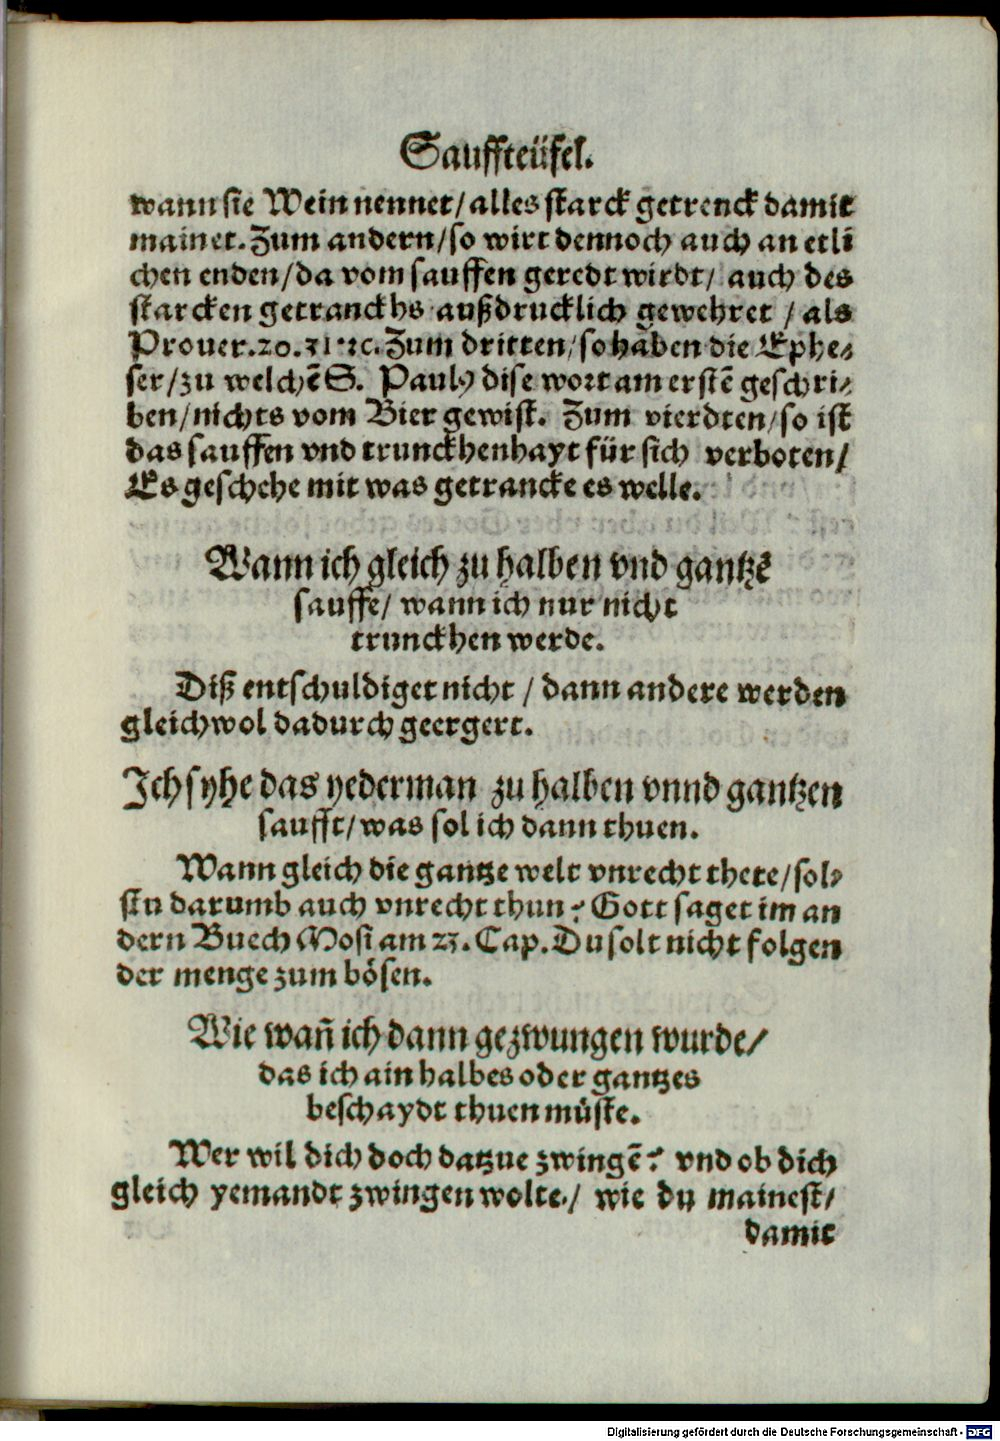 Sauffteüfel.
wann sie Wein nennet/ alles starck getrenck damit
mainet. Zum andern/ so wirt dennoch auch an etli
chen enden/ da vom sauffen geredt wirdt/ auch des
starcken getranckhs außdrucklich gewehret / als
Prouer. 20. 31. ꝛc. Zum dritten/ so haben die Ephe-
ser/ zu welchē S. Pauly dise wort am erstē geschri-
ben/ nichts vom Bier gewist. Zum vierdten/ so ist
das sauffen vnd trunckhenhayt für sich verboten/
Es geschehe mit was getrancke es welle.
Wann ich gleich zu halben vnd gantzē
sauffe/ wann ich nur nicht
trunckhen werde.
Diß entschuldiget nicht / dann andere werden
gleichwol dadurch geergert.
Ich syhe das yederman zu halben vnnd gantzen
saufft/ was sol ich dann thuen.
Wann gleich die gantze welt vnrecht thete/ sol-
stu darumb auch vnrecht thun? Gott saget im an
dern Buech Mosi am 23. Cap. Du solt nicht folgen
der menge zum bösen.
Wie wañ ich dann gezwungen wurde/
das ich ain halbes oder gantzes
beschaydt thuen müste.
Wer wil dich doch datzue zwingē? vnd ob dich
gleich yemandt zwingen wolte/ wie du mainest/
damit
Digitalisierung gefördert durch die Deutsche Forschungsgemeinschaft - DFG